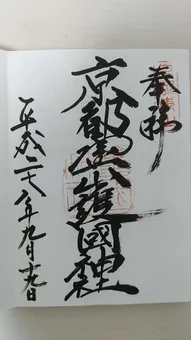 奉拝
京都霊山護國神社
平成二十八年九月十九日